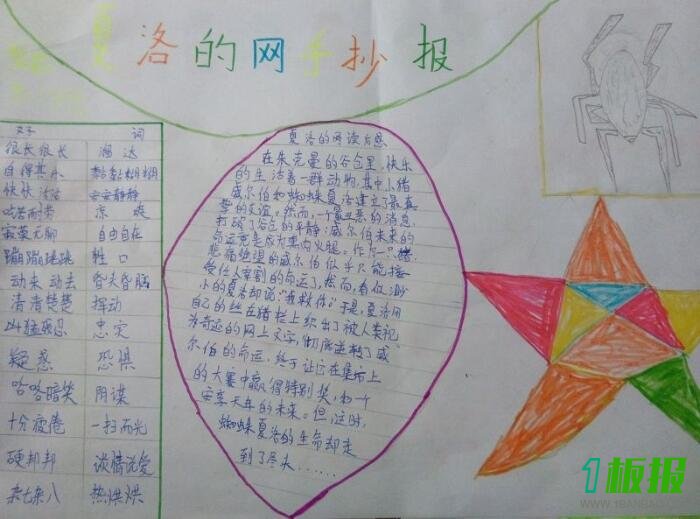 夏洛的网手抄报
好 词
很长很长 温达
自得其乐 黏黏糊糊
快快活活 安安静静
吃苦耐劳 凉爽
安装无聊 自由自在
蹦蹦跳跳 牲口
动来动去 昏头昏脑
清清楚楚 挥动
凶猛残忍 忠实
疑惑 恐惧
哈哈暗笑 阴谋
十分疲倦 一扫而光
硬邦邦 谈情说爱
杂七杂八 热烘烘
夏洛的网读后感
在朱克曼的谷仓里,快乐
的生活着一群动物,其中小猪
威尔伯和蜘蛛夏洛建立了最真
挚的友谊。然而,一个最丑恶的消息
打破了谷仓的平静:威尔伯未来的
命运竟是成为熏肉火腿。作为一只猪
悲痛绝望的威尔伯似乎只能接
受任人宰割的命运了,然而,看似渺
小的夏洛却说:"我救你。"于是,夏洛用
自己的丝在猪栏上织出了被人类视
为奇迹的网上文字,彻底逆转了威
尔伯的命运,终于让它在集市上
的大赛中赢得特别奖,和一个
安享天年的未来。但,这时,
蜘蛛夏洛的生命却走
到了尽头……
1板报
WWW.1BANBAO.COM